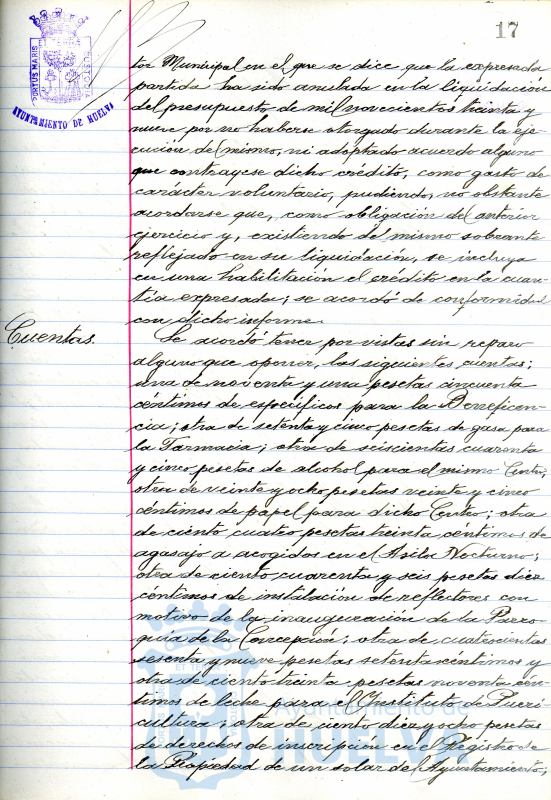 17
PORTUS MARIS
CUSTODIA
AYUNTAMIENTO DE HUELVA
tor Municipal en el que se dice que la expresada
partida ha sido anulada en la liquidación
del presupuesto de mil novecientos treinta y
nueve por no haberse otorgado durante la eje-
cución del mismo, ni adoptado acuerdo alguno
que contrayese dicho crédito, como gasto de
carácter voluntario, pudiendo, no obstante
acordarse que, como obligación del anterior
ejercicio y, existiendo del mismo sobrante
reflejado en su liquidación, se incluya
en una habilitación el crédito en la cuan-
tía expresada; se acordó de conformidad
con dicho informe.
Cuentas.
Se acordó tener por vistas sin reparo
alguno que oponer, las siguientes cuentas;
una de noventa y una pesetas cincuenta
céntimos de específicos para la Beneficen-
cia; otra de setenta y cinco pesetas de gasa para
la Farmacia; otra de seiscientas cuarenta
y cinco pesetas de alcohol para el mismo Centro;
otra de veinte y ocho pesetas veinte y cinco
céntimos de papel para dicho Centro; otra
de ciento cuatro pesetas treinta céntimos de
agasajo a acogidos en el Asilo Nocturno;
otra de ciento cuarenta y seis pesetas diez
céntimos de instalación de reflectores con
motivo de la inauguración de la Parro-
quia de la Concepción; otra de cuatrocientas
sesenta y nueve pesetas setenta céntimos y
otra de ciento treinta pesetas noventa cén-
timos de leche para el Instituto de Pueri-
cultura; otra de ciento diez y ocho pesetas
de derechos de inscripción en el Registro de
la Propiedad de un solar del Ayuntamiento;
Ayuntamiento de
HUELVA